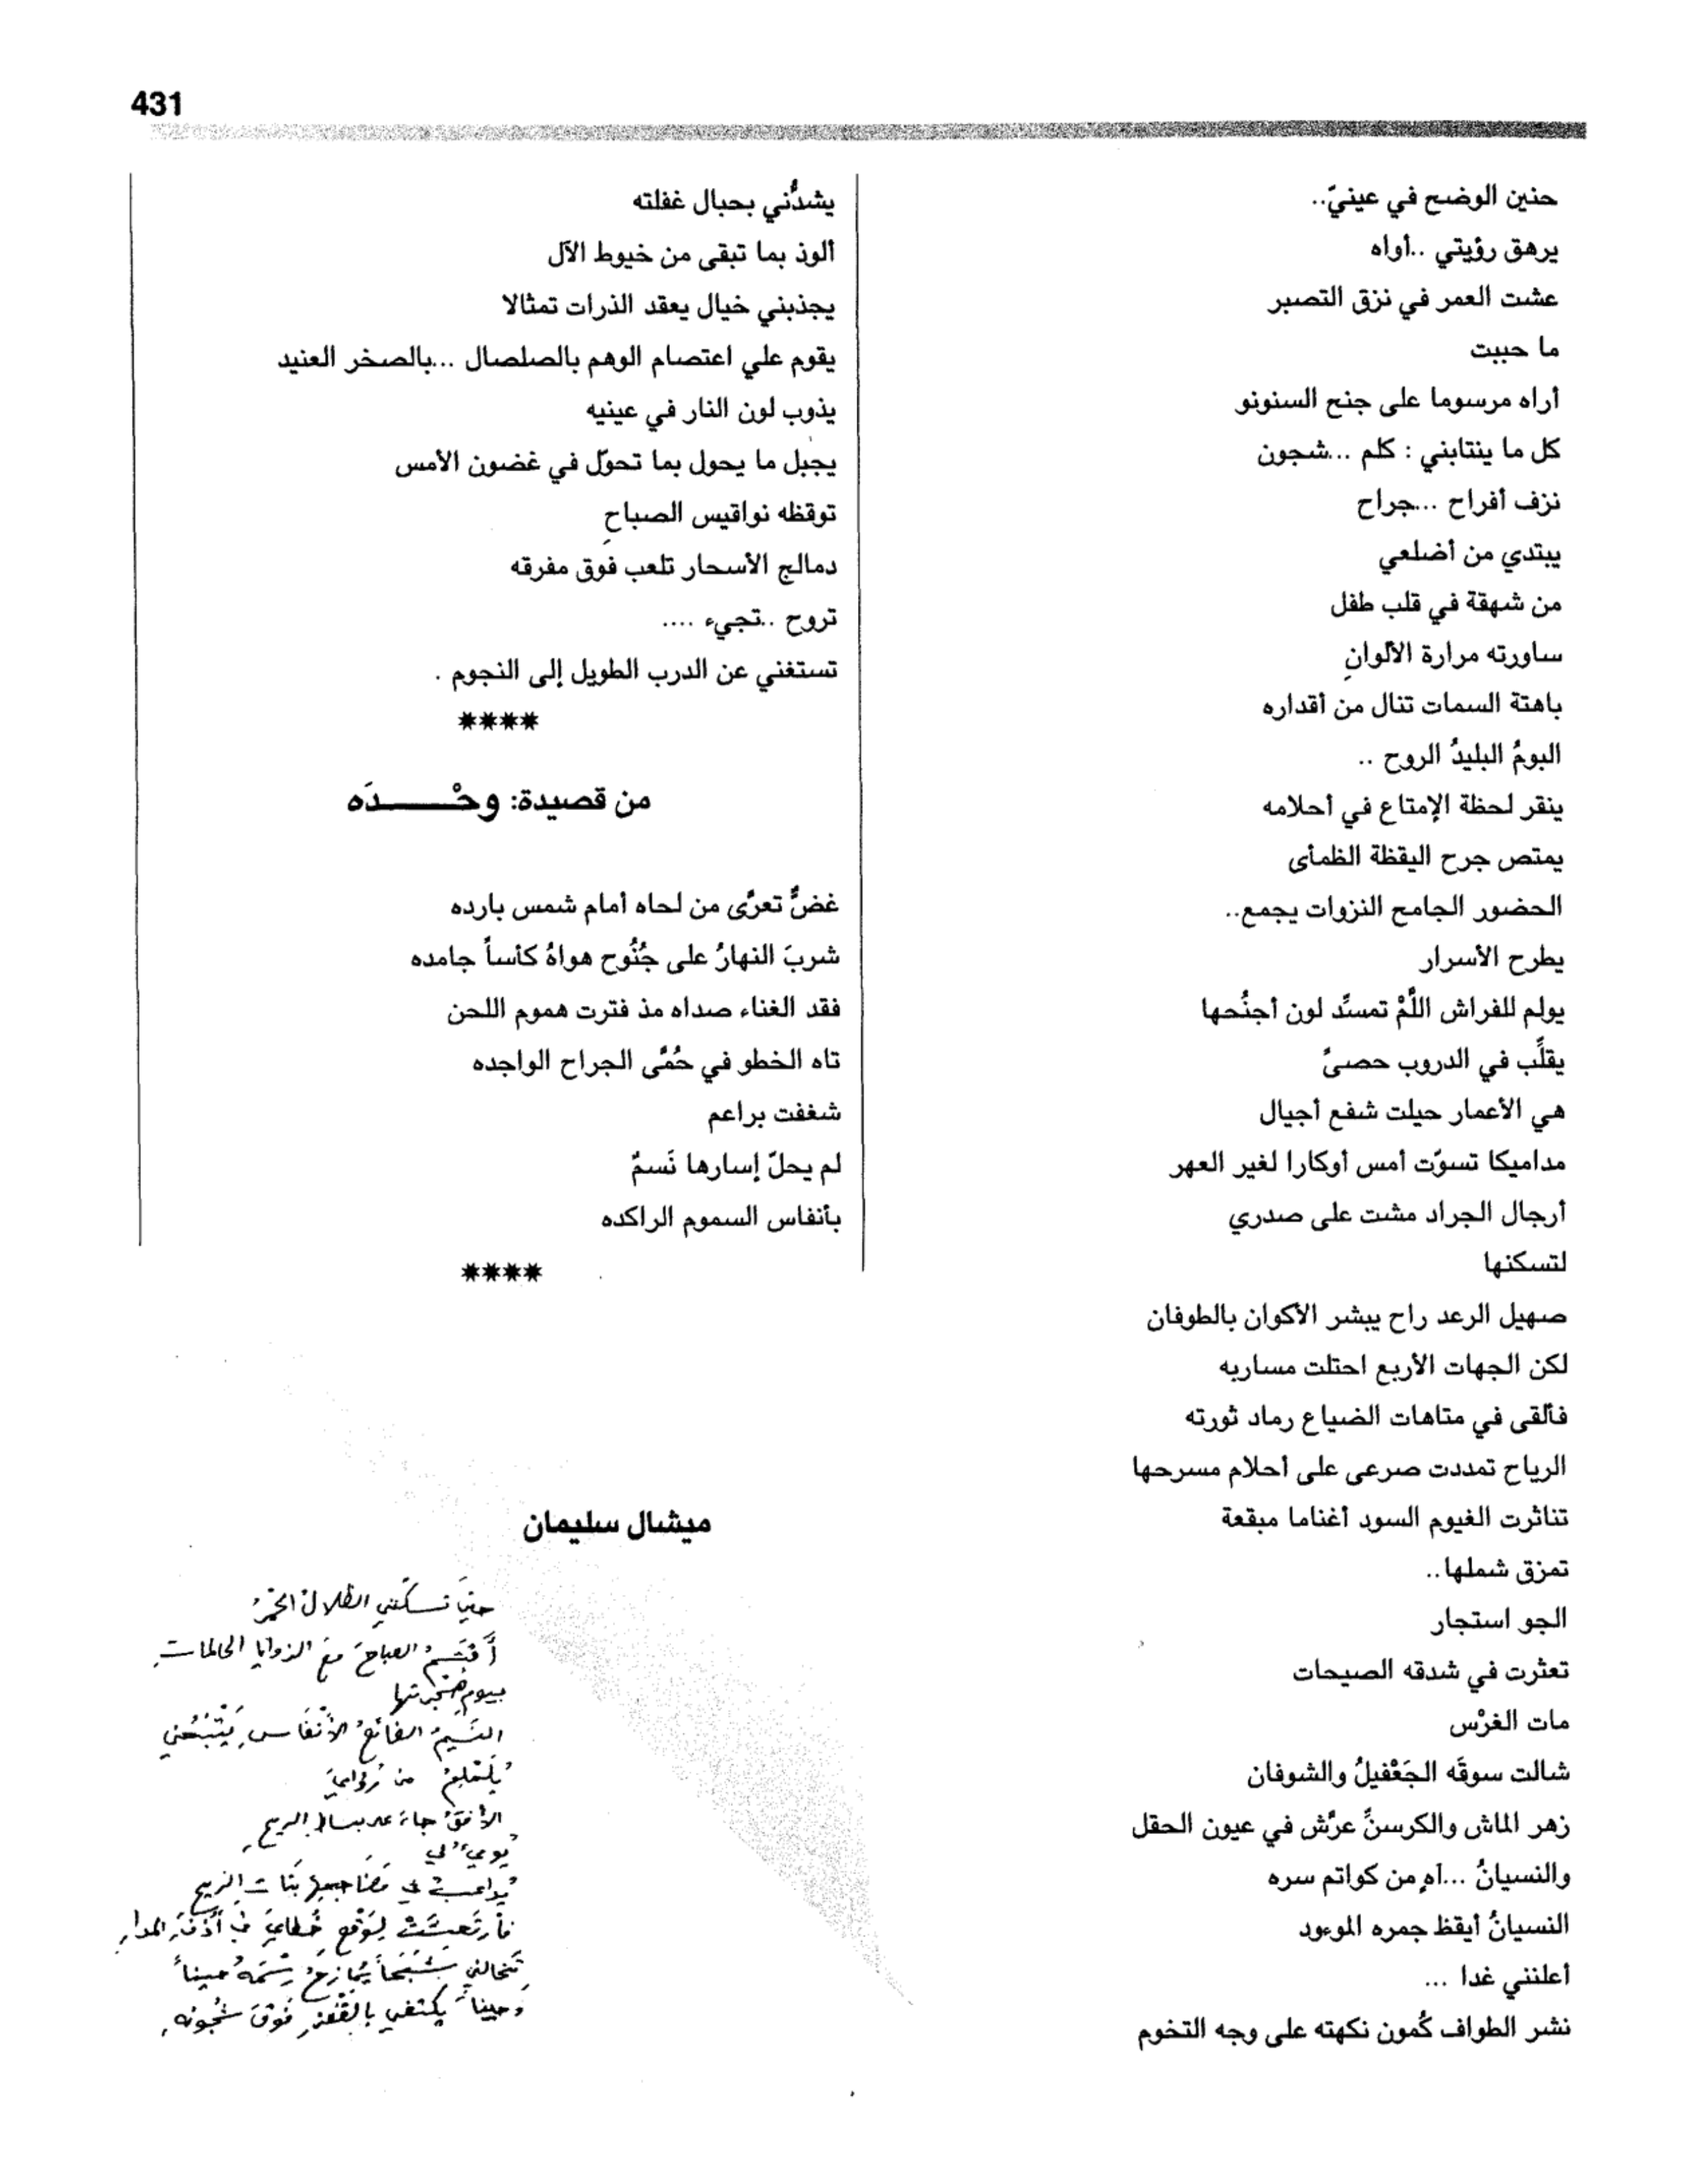 431
حنين الوضح في عينيّ..
يرهق رؤيتي ..أواه
عشت العمر في نزق التصبر
ما حببت
أراه مرسوما على جنح السنونو
كل ما ينتابني : كلم ...شجون
نزف أفراح ...جراح
يبتدي من أضلعي
من شهقة في قلب طفل
ساورته مرارة الألوانِ
باهتة السمات تنال من أقداره
البومُ البليدُ الروح ..
ينقر لحظة الإمتاع في أحلامه
يمتص جرح اليقظة الظمأى
الحضور الجامح النزوات يجمع..
يطرح الأسرار
يولم للفراش اللَّمْ تمسدِّ لون أجنُحها
يقلِّب في الدروب حصىً
هي الأعمار حيلت شفع أجيال
مداميكا تسوّت أمس أوكارا لغير العهر
أرجال الجراد مشت على صدري
لتسكنها
صهيل الرعد راح يبشر الأكوان بالطوفان
لكن الجهات الأربع احتلت مساربه
فألقى في متاهات الضياع رماد ثورته
الرياح تمددت صرعى على أحلام مسرحها
تناثرت الغيوم السود أغناما مبقعة
تمزق شملها..
الجو استجار
تعثرت في شدقه الصيحات
مات الغرْس
شالت سوقَه الجَعْفيلُ والشوفان
زهر الماش والكرسنِّ عرَّش في عيون الحقل
والنسيانُ ...آهٍ من كواتم سره
النسيانُ أيقظ جمره الموءود
أعلنني غدا ...
نشر الطواف كُمون نكهته على وجه التخوم
يشدُّني بحبال غفلته
ألوذ بما تبقى من خيوط الآل
يجذبني خيال يعقد الذرات تمثالا
يقوم علي اعتصام الوهم بالصلصال ...بالصخر العنيد
يذوب لون النار في عينيه
يجبل ما يحول بما تحوّل في غضون الأمس
توقظه نواقيس الصباحِ
دمالج الأسحار تلعب فوق مفرقه
تروح ..تجيء ....
تستغني عن الدرب الطويل إلى النجوم .
****
من قصيدة: وحْـــــدَه
غضٌّ تعرَّى من لحاه أمام شمس بارده
شربَ النهارُ على جُنُوح هواهُ كأساً جامده
فقد الغناء صداه مذ فترت هموم اللحن
تاه الخطو في حُمَّى الجراح الواجده
شغفت براعم
لم يحلّ إسارها نَسمٌ
بأنفاس السموم الراكده
****
ميشال سليمان
حينَ تسكنني الظلالُ الحمرُ
أقتسمُ الصباحَ معَ الزوايا الحالماتِ
بيومِ هجرتها
النسيمُ الضائعُ الأنفاسِ يَتْبَعُني
من رُؤايَ
الأفقُ جاءَ على بساطِ الريحِ
يومئُ لي
في مَضَاجعها بَنات الريحِ
فارتعشتْ لِوَقْعِ خُطايَ في أُذُنِ المدارِ
تخالني شَبَحاً يُمازحُ حيناً
وحيناً يكتفي بالقفزِ فوقَ شجونهِ